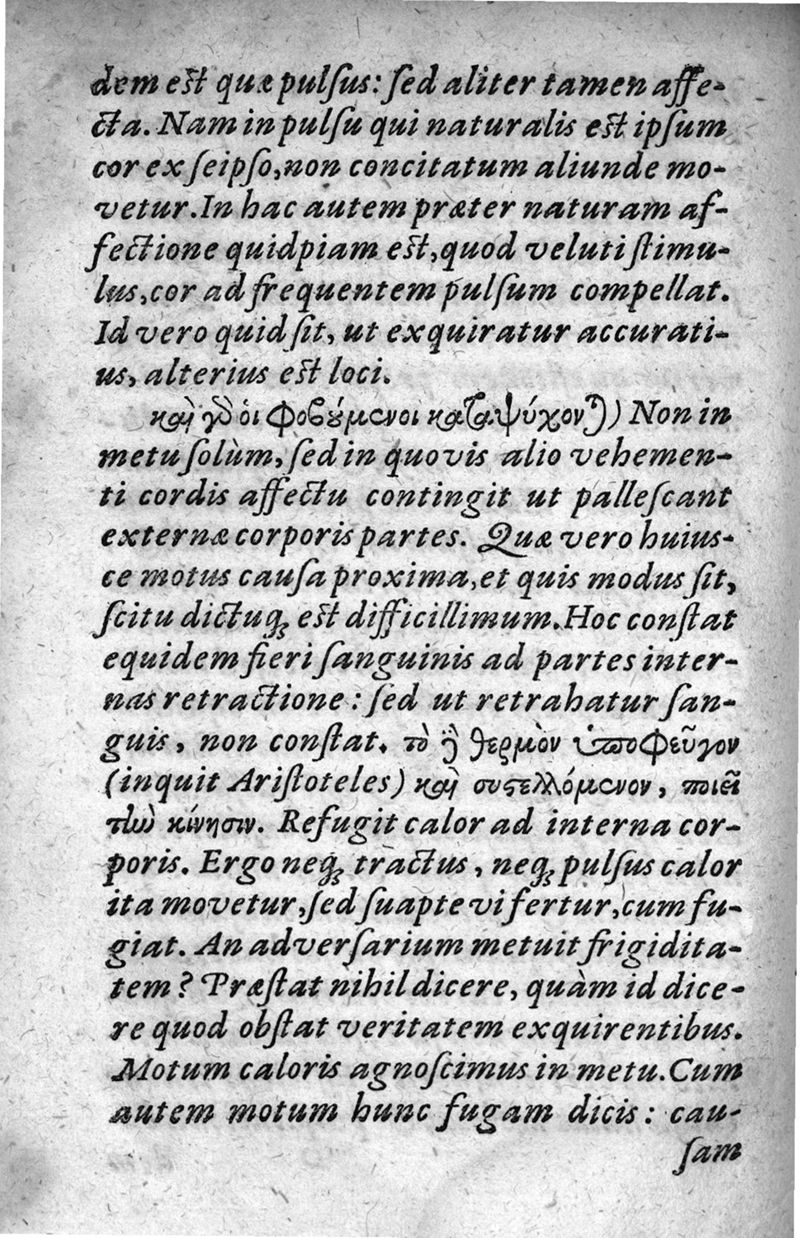 dem est quæ pulſus: ſed aliter tamen affe-
cta. Nam in pulſu qui naturalis est ipſum
cor ex ſeipſo, non concitatum aliunde mo-
vetur. In hac autem præter naturam af-
fectione quidpiam est, quod veluti ſtimu-
lus, cor ad frequentem pulſum compellat.
Id vero quid ſit, ut exquiratur accurati-
us, alterius est loci.
καὶ γὸ οἱ φοβούμενοι καταψύχονται) Non in
metu ſolùm, ſed in quovis alio vehemen-
ti cordis affectu contingit ut palleſcant
externæ corporis partes. Quæ vero huius-
ce motus cauſa proxima, et quis modus ſit,
ſcitu dictuq; est difficillimum. Hoc conſtat
equidem fieri ſanguinis ad partes inter-
nas retractione: ſed ut retrahatur ſan-
guis, non conſtat. τὸ δὲ θερμὸν ὑποφεῦγον
(inquit Ariſtoteles) καὶ συστελλόμενον, ποιεῖ
τὴν κίνησιν. Refugit calor ad interna cor-
poris. Ergo neq; tractus, neq; pulſus calor
ita movetur, ſed ſuapte vi fertur, cum fu-
giat. An adverſarium metuit frigidita-
tem? Præſtat nihil dicere, quàm id dice-
re quod obſtat veritatem exquirentibus.
Motum caloris agnoſcimus in metu. Cum
autem motum hunc fugam dicis: cau-
ſam